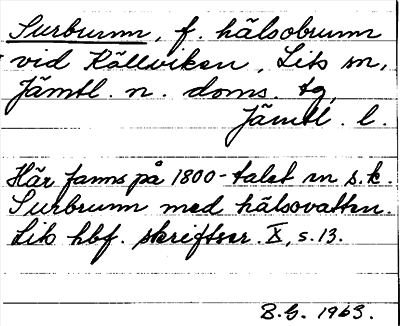 Surbrunn, f. hälsobrunn
vid Källviken, Lits sn,
Jämtl. n. doms. tg,
Jämtl. l.
Här fanns på 1800-talet en s.k.
Surbrunn med hälsovatten.
Lits hbf. skriftser. X, s. 13.
B.G. 1963.